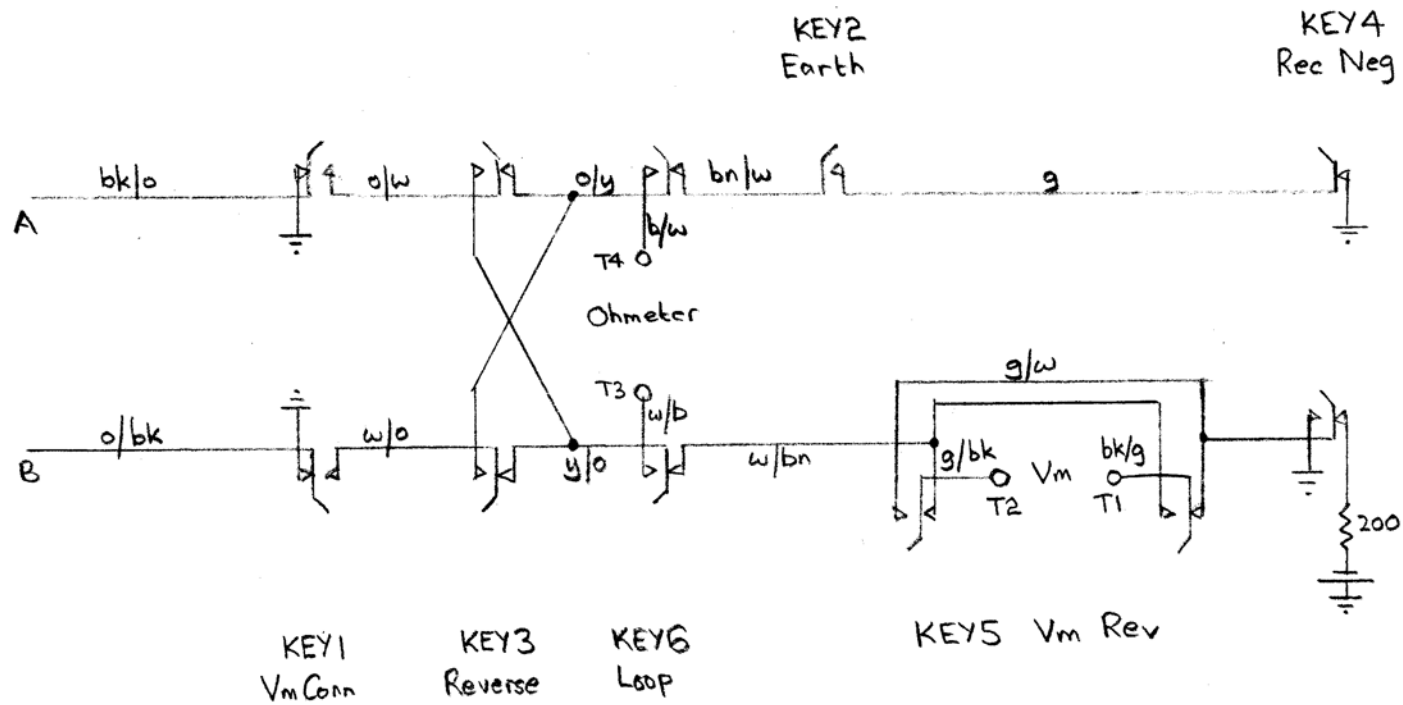 KEY2
Earth
KEY4
Rec Neg
bk/o
o/w
o/y
bn/w
g
A
b/w
T4
Ohmeter
T3
g/w
o/bk
w/o
w/b
y/o
w/bn
g/bk
Vm
bk/g
B
T2
T1
200
KEY1
Vm Conn
KEY3
Reverse
KEY6
Loop
KEY5 Vm Rev